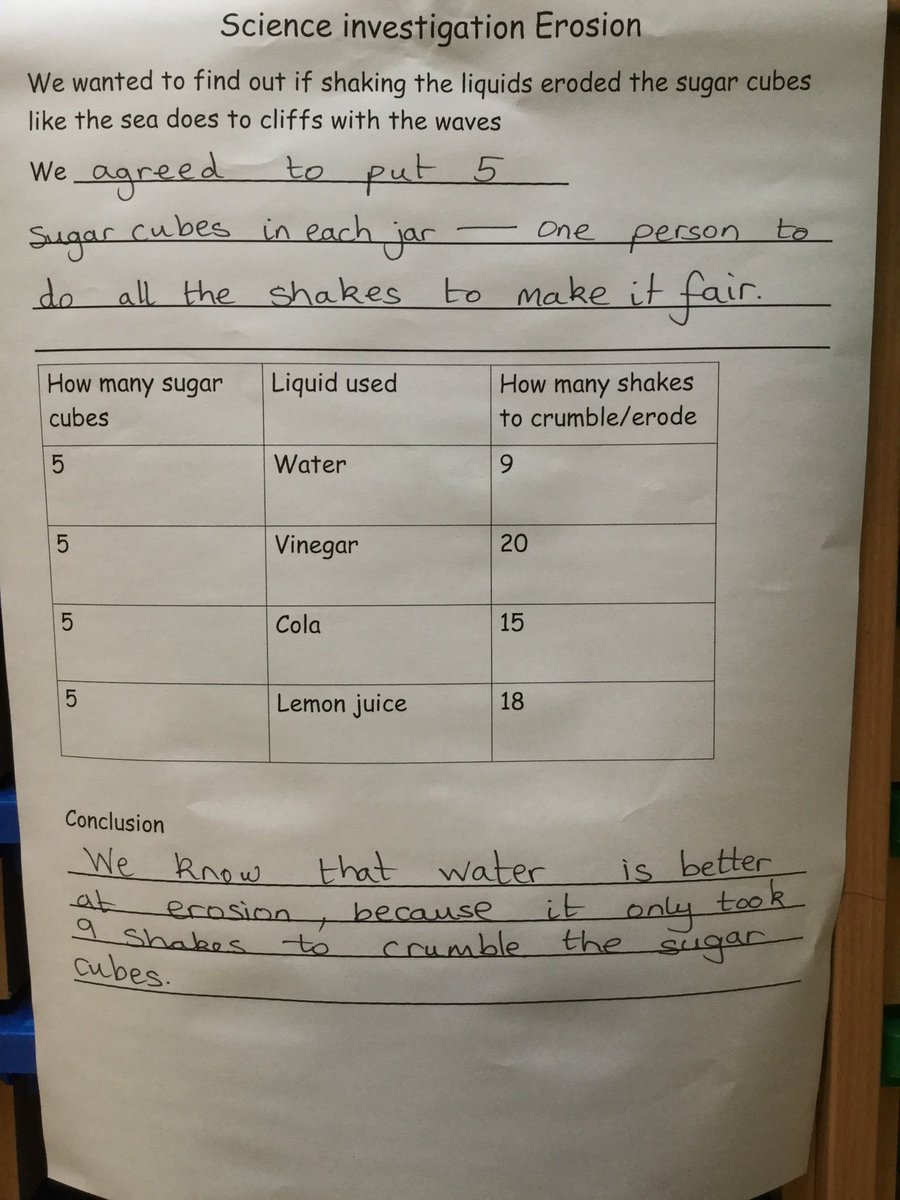 Science investigation Erosion
We wanted to find out if shaking the liquids eroded the sugar cubes
like the sea does to cliffs with the waves
We agreed to put 5
sugar cubes in each jar — one person to
do all the shakes to make it fair.
How many sugar cubes Liquid used How many shakes to crumble/erode
5 Water 9
5 Vinegar 20
5 Cola 15
5 Lemon juice 18
Conclusion
We know that water is better
at erosion, because it only took
9 shakes to crumble the sugar
cubes.